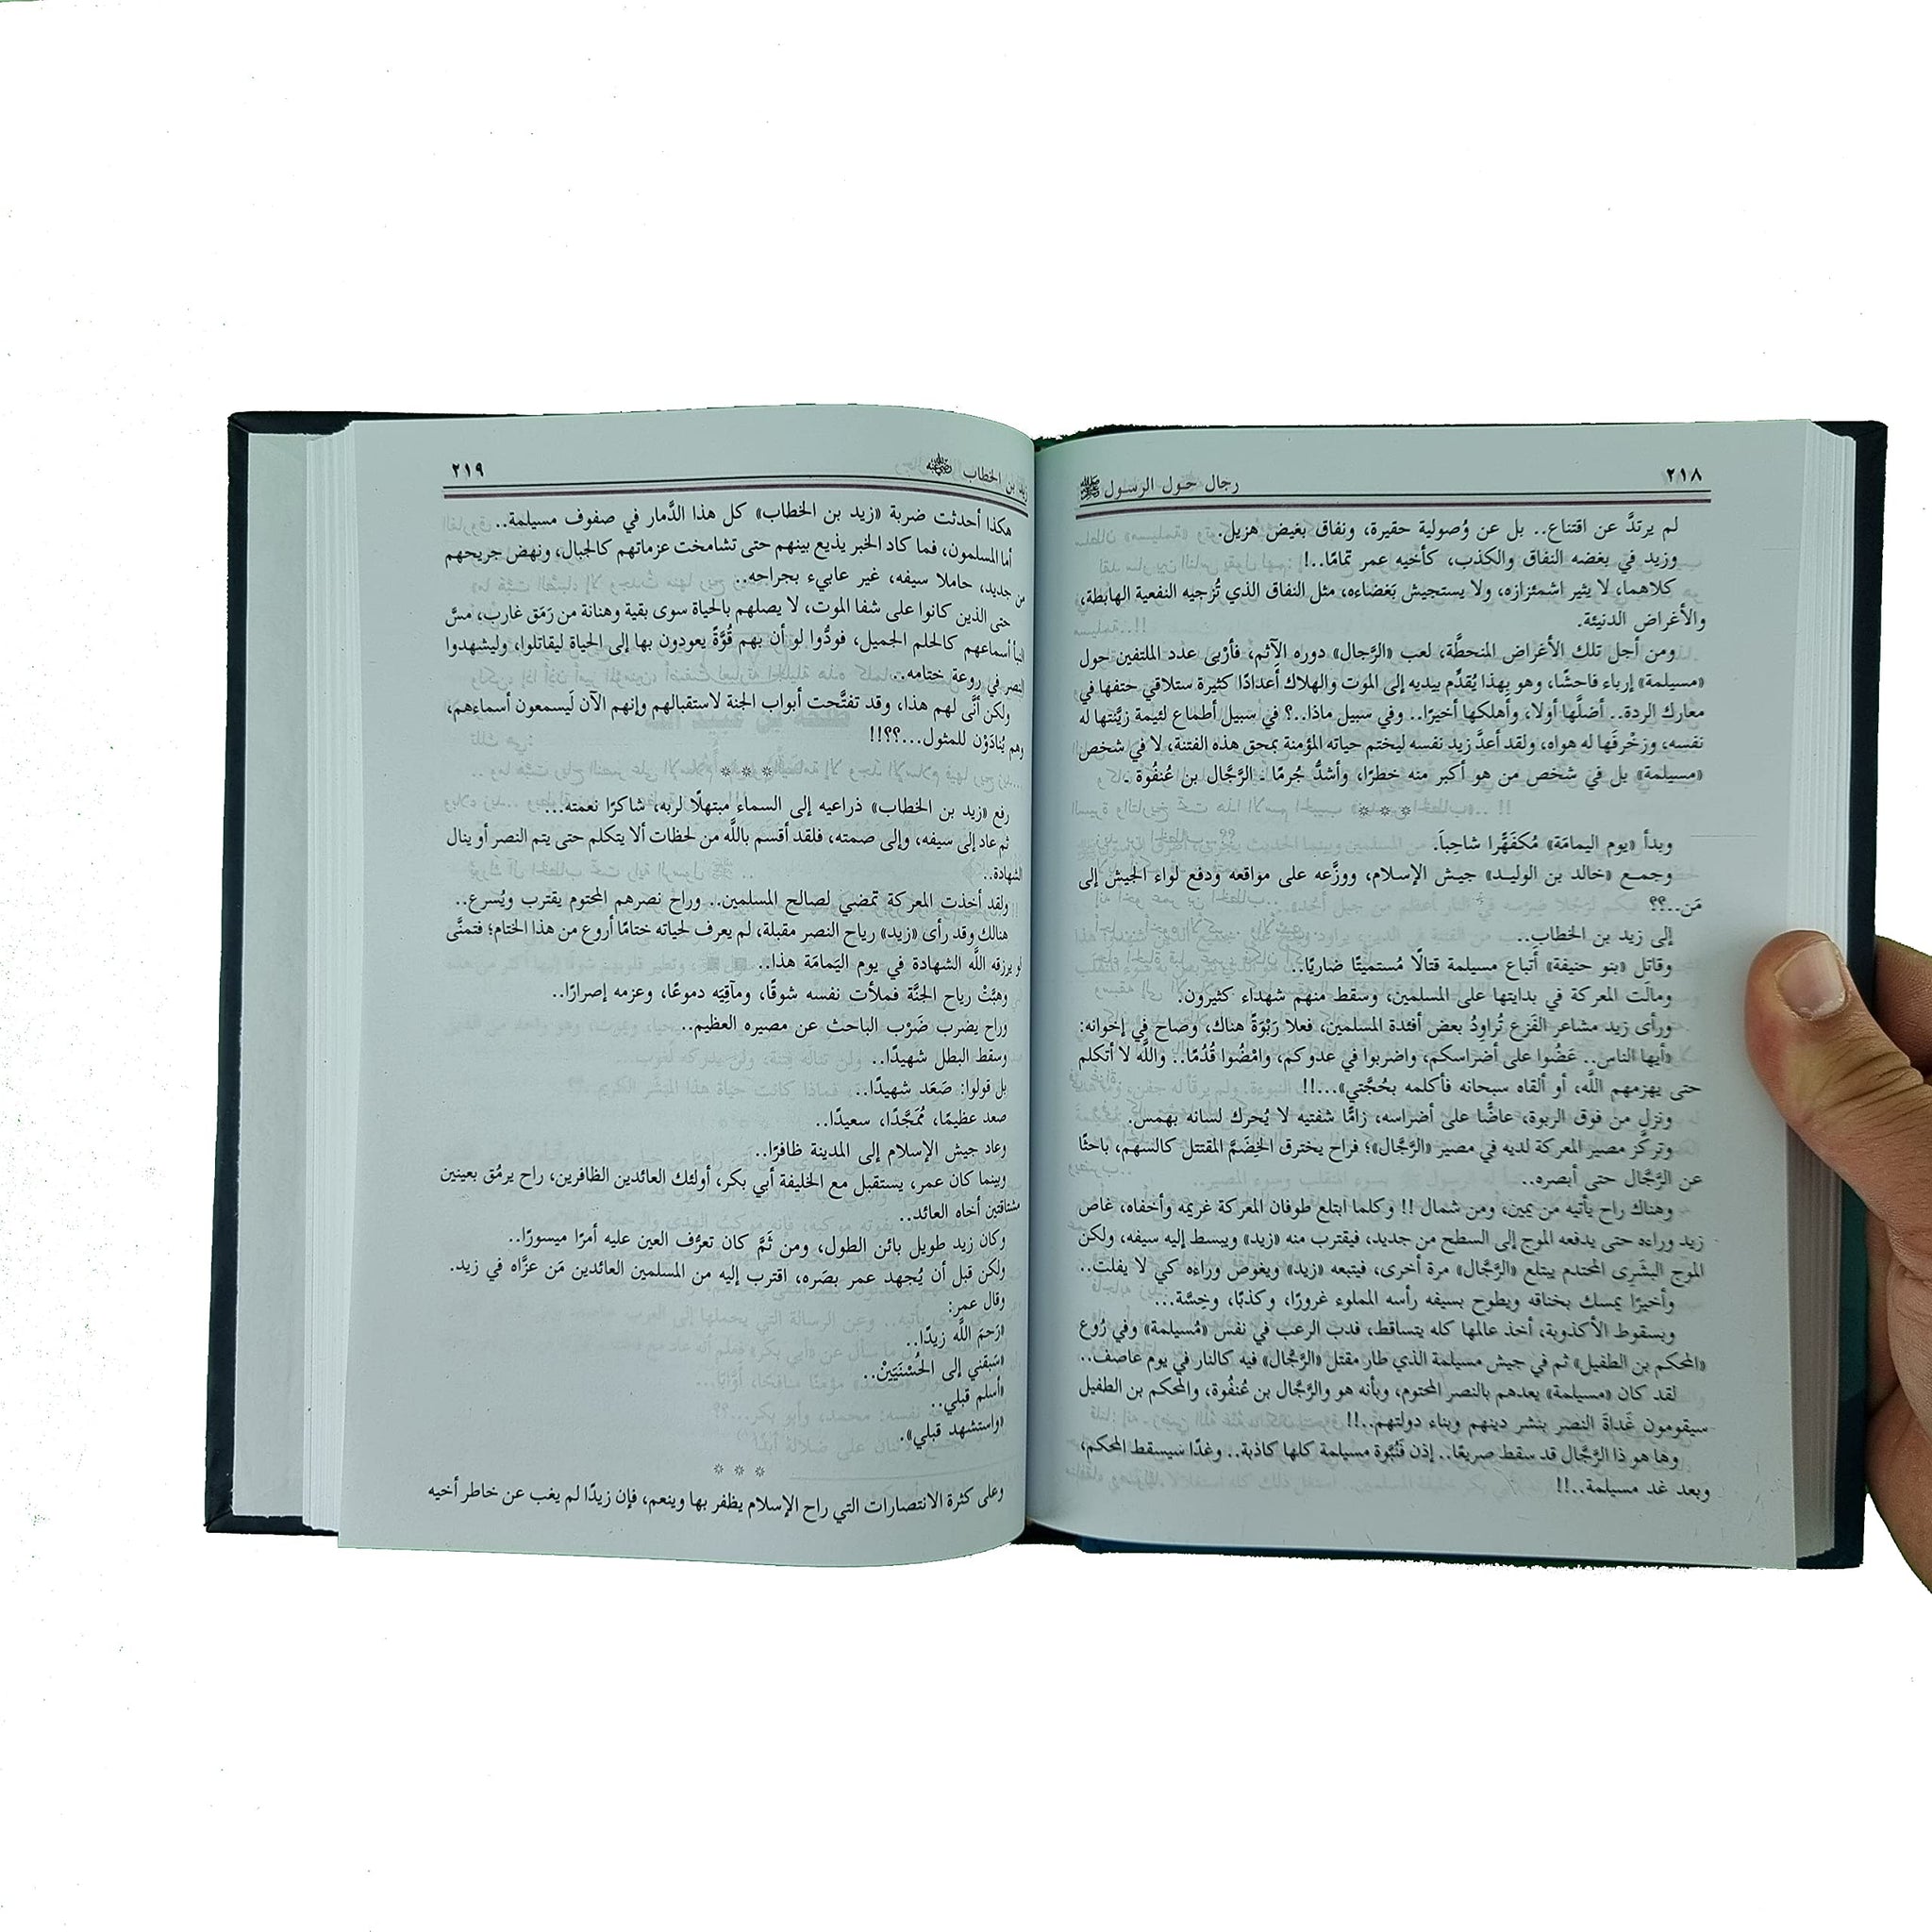 ٢١٨
رجال حول الرسول ﷺ
لم يرتدَّ عن اقتناع.. بل عن وُصولية حقيرة، ونفاق بغيض هزيل.
وزيد في بغضه النفاق والكذب، كأخيه عمر تمامًا..!
كلاهما، لا يثير اشمئزازه، ولا يستجيش بَغضاءه، مثل النفاق الذي تُزجيه النفعية الهابطة،
والأغراض الدنيئة.
ومن أجل تلك الأغراض المنحطَّة، لعب «الرَّجال» دوره الآثم، فأرْبى عدد الملتفين حول
«مسيلمة» إرباء فاحشًا، وهو بهذا يُقدِّم بيديه إلى الموت والهلاك أَعدادًا كثيرة ستلاقي حتفها في
معارك الردة.. أضلَّها أولا، وأهلكها أخيرًا.. وفي سبيل ماذا..؟ في سبيل أطماع لئيمة زيَّنتها له
نفسه، وزخْرفَها له هواه، ولقد أعدَّ زيد نفسه ليختم حياته المؤمنة بمحق هذه الفتنة، لا في شخص
«مسيلمة» بل في شخص من هو أكبر منه خطرًا، وأشدُّ جُرمًا . الرَّجَّال بن عُنفُوة .
* * *
وبدأ «يوم اليمامَة» مُكفَهًرا شاحِباً.
وجمـع «خالد بن الوليـد» جيـش الإسلام، ووزَّعه على مواقعه ودفع لواء الجيش إلى
مَن..؟؟
إلى زيد بن الخطاب..
وقاتل «بنو حنيفة» أَتباع مسيلمة قتالًا مُستميتًا ضاريًا..
ومالَت المعركة في بدايتها على المسلمين، وسقط منهم شهداء كثيرون.
ورأى زيد مشاعر الفَزع تُراوِدُ بعض أفئدة المسلمين، فعلا رَبْوَةً هناك، وصاح في إخوانه:
«أيها الناس.. عَضُوا على أضراسكم، واضربوا في عدوكم، وامْضُوا قُدُمًا.. واللَّه لا أتكلم
حتى يهزمهم اللَّه، أو ألقاه سبحانه فأكلمه بحُجَّتي»...!!
ونزل من فوق الربوة، عاضًّا على أضراسه، زامًّا شفتيه لا يُحرك لسانه بهمس.
وتركَّز مصير المعركة لديه في مصير «الرَّجَّال»؛ فراح يخترق الخِضَمَّ المقتتل كالسهم، باحثًا
عن الرَّجَّال حتى أبصره..
وهناك راح يأتيه من يمين، ومن شمال !! وكلما ابتلع طوفان المعركة غريمه وأخفاه، غاص
زيد وراءه حتى يدفعه الموج إلى السطح من جديد، فيقترب منه «زيد» ويبسط إليه سيفه، ولكن
الموج البشَرِى المحتدم يبتلع «الرَّجَّال» مرة أخرى، فيتبعه «زيد» ويغوص وراءه كي لا يفلت..
وأخيرًا يمسك بخناقه ويطوح بسيفه رأسه المملوء غرورًا، وكذبًا، وخِسَّة...
وبسقوط الأكذوبة، أخذ عالمها كله يتساقط، فدب الرعب في نفس «مُسيلمة» وفي رُوع
«المحكم بن الطفيل» ثم في جيش مسيلمة الذي طار مقتل «الرَّجَّال» فيه كالنار في يوم عاصف..
لقد كان «مسيلمة» يعدهم بالنصر المحتوم، وبأنه هو والرَّجَّال بن عُنفُوة، والمحكم بن الطفيل
سيقومون غَداةَ النصر بنشر دينهم وبناء دولتهم..!!
وها هو ذا الرَّجَّال قد سقط صريعًا.. إذن فَنُبُوَّة مسيلمة كلها كاذبة.. وغدًا سيسقط المحكم،
وبعد غد مسيلمة..!!
زيد بن الخطاب
٢١٩
هكذا أحدثت ضربة «زيد بن الخطاب» كل هذا الدَّمار في صفوف مسيلمة..
أما المسلمون، فما كاد الخبر يذيع بينهم حتى تشامخت عزماتهم كالجبال، ونهض جريحهم
من جديد، حاملا سيفه، غير عابيء بجراحه..
حتى الذين كانوا على شفا الموت، لا يصلهم بالحياة سوى بقية وهنانة من رَمَق غارب، مسَّ
النبأ أسماعهم كالحلم الجميل، فودُّوا لو أن بهم قُوَّةً يعودون بها إلى الحياة ليقاتلوا، وليشهدوا
النصر في روعة ختامه..
ولكن أنَّى لهم هذا، وقد تفتَّحت أبواب الجنة لاستقبالهم وإنهم الآن لَيسمعون أسماءهم،
وهم يُنادَوْن للمثول...؟؟!!
* * *
رفع «زيد بن الخطاب» ذراعيه إلى السماء مبتهلًا لربه، شاكرًا نعمته...
ثم عاد إلى سيفه، وإلى صمته، فلقد أقسم باللَّه من لحظات ألا يتكلم حتى يتم النصر أو ينال
الشهادة..
ولقد أخذت المعركة تمضي لصالح المسلمين.. وراح نصرهم المحتوم يقترب ويُسرع..
هنالك وقد رأى «زيد» رياح النصر مقبلة، لم يعرف لحياته ختامًا أروع من هذا الختام؛ فتمنَّى
لو يرزقه اللَّه الشهادة في يوم اليَمامَة هذا..
وهبَّتْ رياح الجنَّة فملأت نفسه شوقًا، ومآقِيَه دموعًا، وعزمه إصرارًا..
وراح يضرب ضَرْب الباحث عن مصيره العظيم..
وسقط البطل شهيدًا..
بل قولوا: صَعَد شهيدًا..
صعد عظيمًا، مُمَجَّدًا، سعيدًا..
وعاد جيش الإسلام إلى المدينة ظافرًا..
وبينما كان عمر، يستقبل مع الخليفة أبي بكر، أولئك العائدين الظافرين، راح يرمُق بعينين
مشتاقتين أخاه العائد..
وكان زيد طويل بائن الطول، ومن ثَمَّ كان تعرُّف العين عليه أمرًا ميسورًا..
ولكن قبل أن يُجهد عمر بصَره، اقترب إليه من المسلمين العائدين مَن عزَّاه في زيد.
وقال عمر:
«رَحمَ اللَّه زيدًا..
«سَبقني إلى الحُسْنَيَيْنْ..
«أسلم قبلي..
«واستشهد قبلي».
* * *
وعلى كثرة الانتصارات التي راح الإسلام يظفر بها وينعم، فإن زيدًا لم يغب عن خاطر أخيه